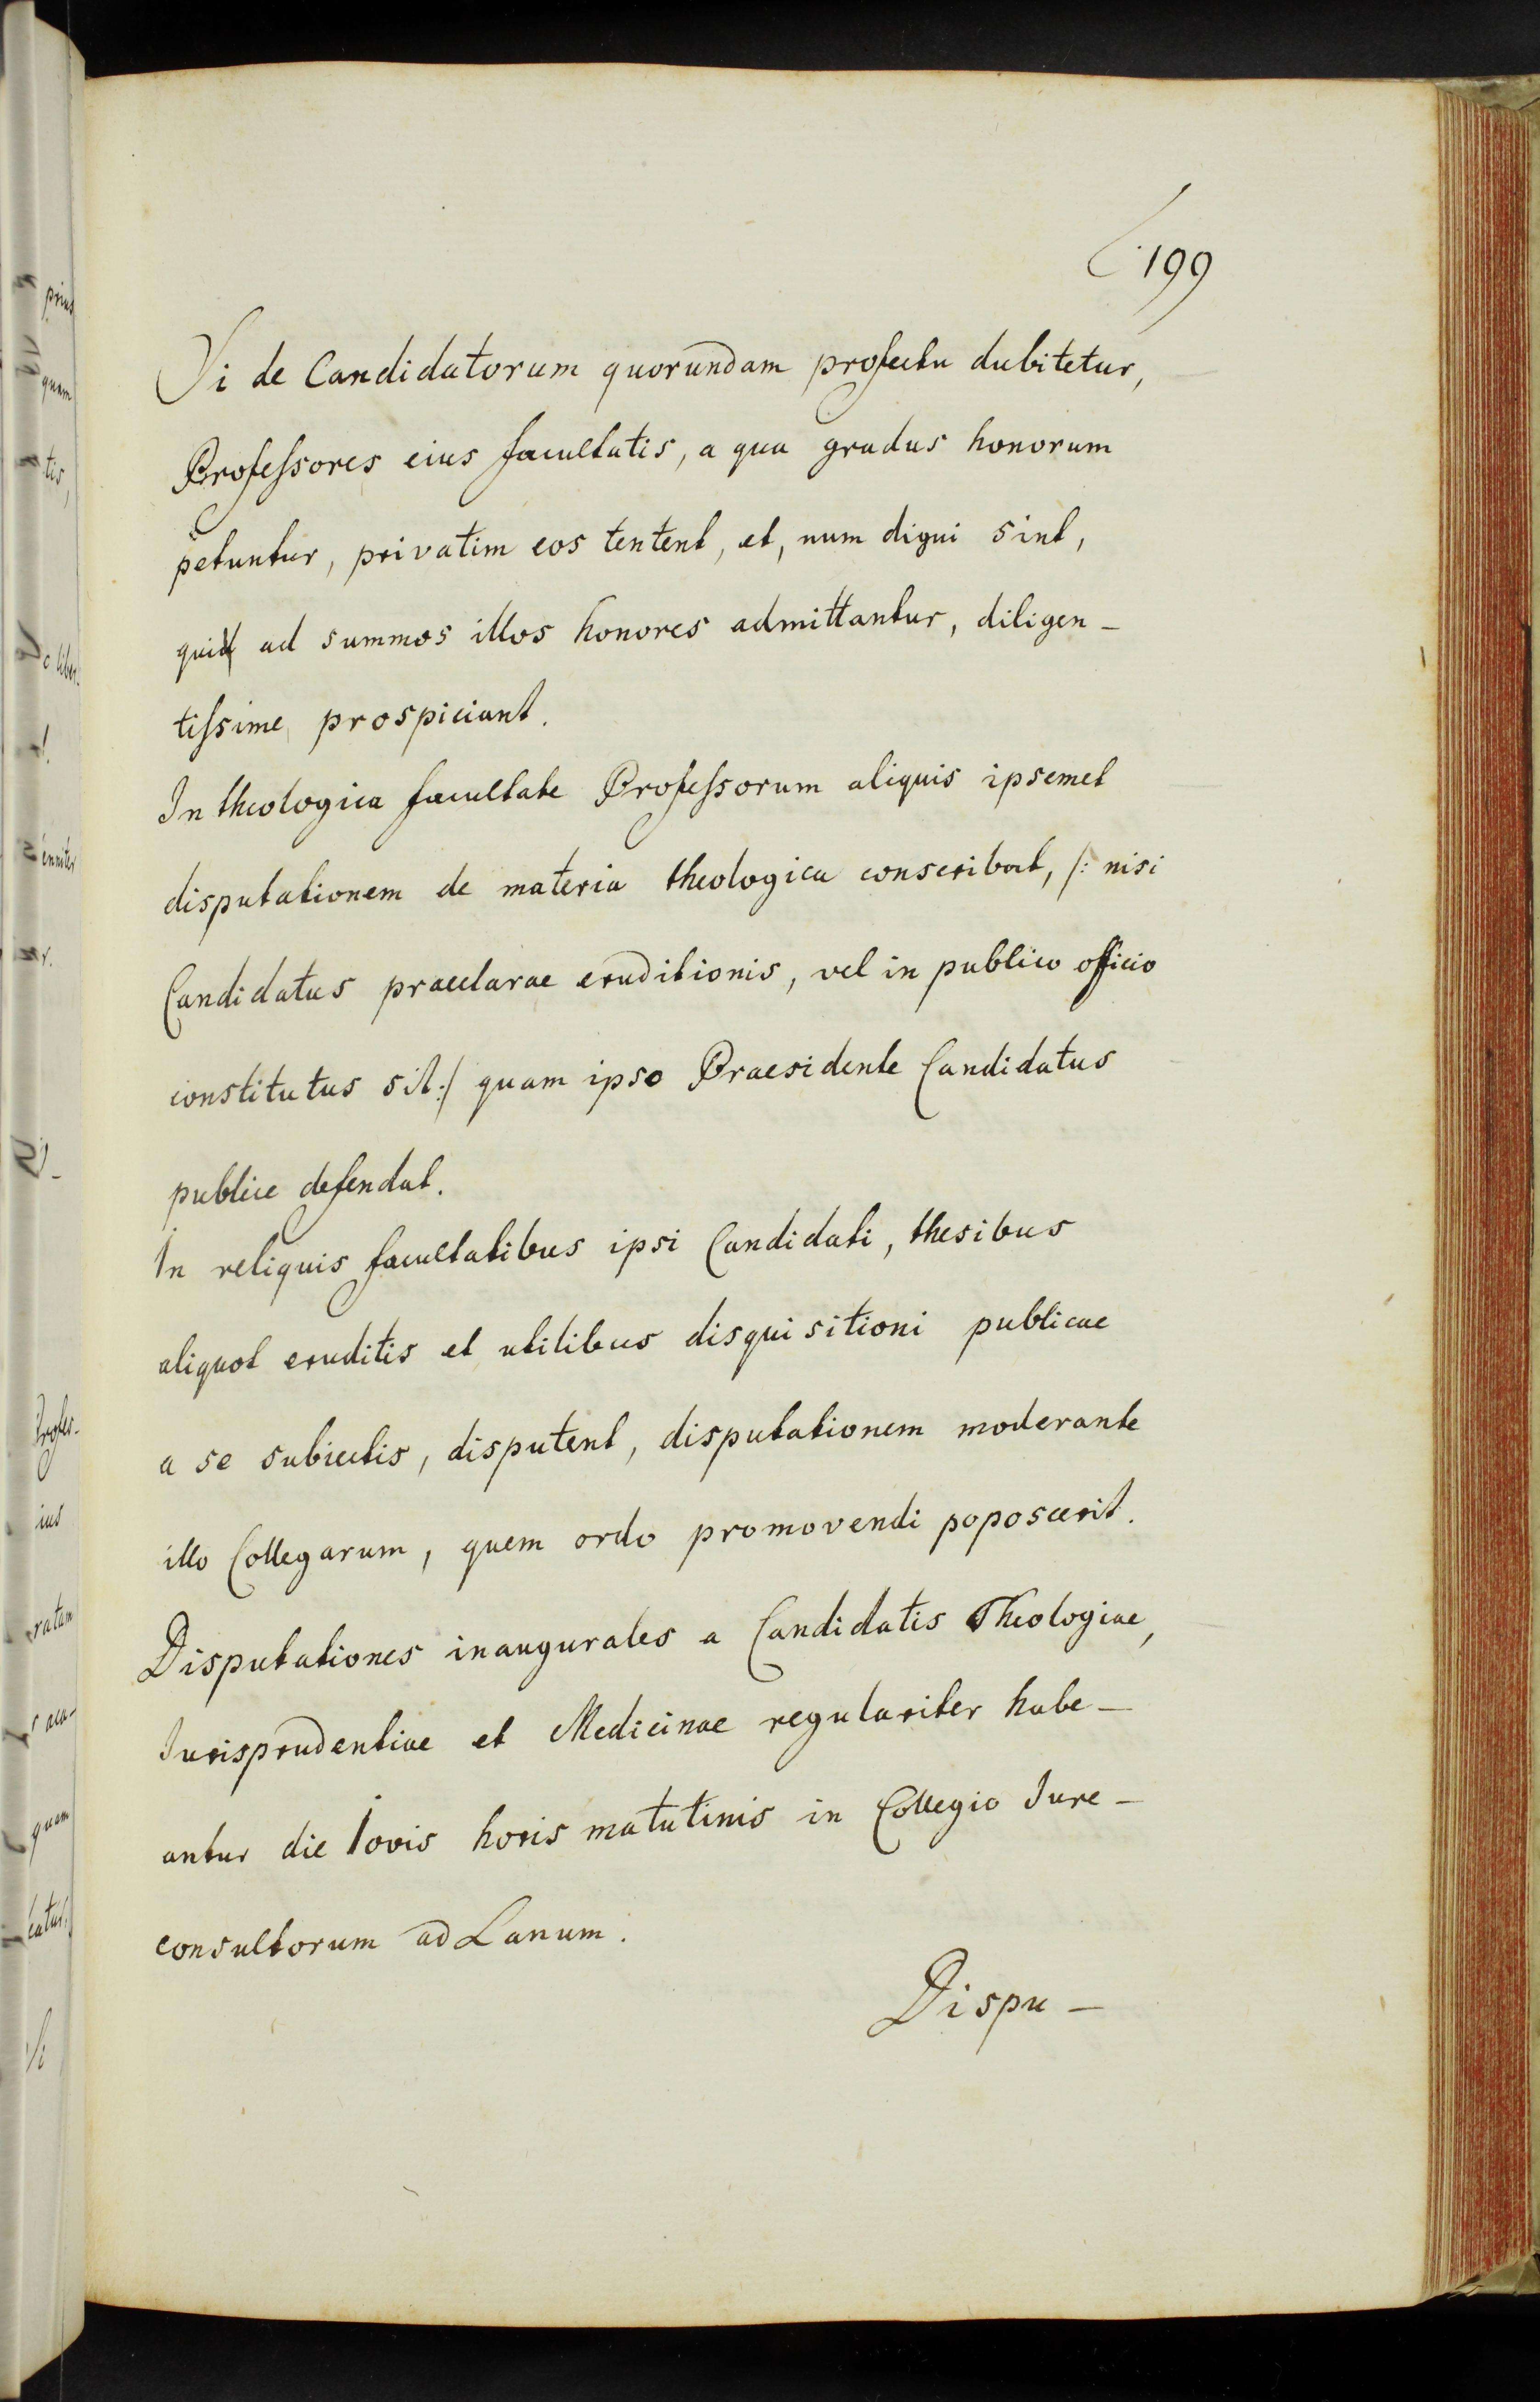 199
Si de Candidatorum quorundam profectu dubitetur,
Professores eius facultatis, a qua gradus honorum
petuntur, privatim eos tentent, et, num digni sint,
qui ad summos illos honores admittantur, diligen-
tissime prospiciant.
In theologica facultate Professorum aliquis ipsemet
disputationem de materia theologica conscribat, /: nisi
Candidatus praeclarae eruditionis, vel in publico officio
constitutus sit :/ quam ipso Praesidente Candidatus
publice defendat.
In reliquis facultatibus ipsi Candidati, thesibus
aliquot eruditis et utilibus disquisitioni publicae
a se subiectis, disputent, disputationem moderante
illo Collegarum, quem ordo promovendi poposcerit.
Disputationes inaugurales a Candidatis Theologiae,
Iurisprudentiae et Medicinae regulariter habe-
antur die Iovis horis matutinis in Collegio Iure-
consultorum ad Lanum.
Dispu-